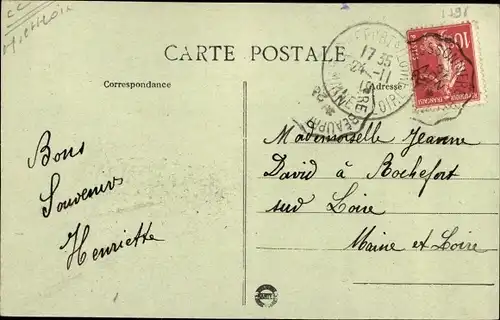 CARTE POSTALE
Correspondance
Adresse
17 35
24-11
10
REPUBLIQUE FRANÇAISE
Bons
Souvenirs
Henriette
Mademoiselle Jeanne
David à Rochefort
sud Loire
Maine et Loire